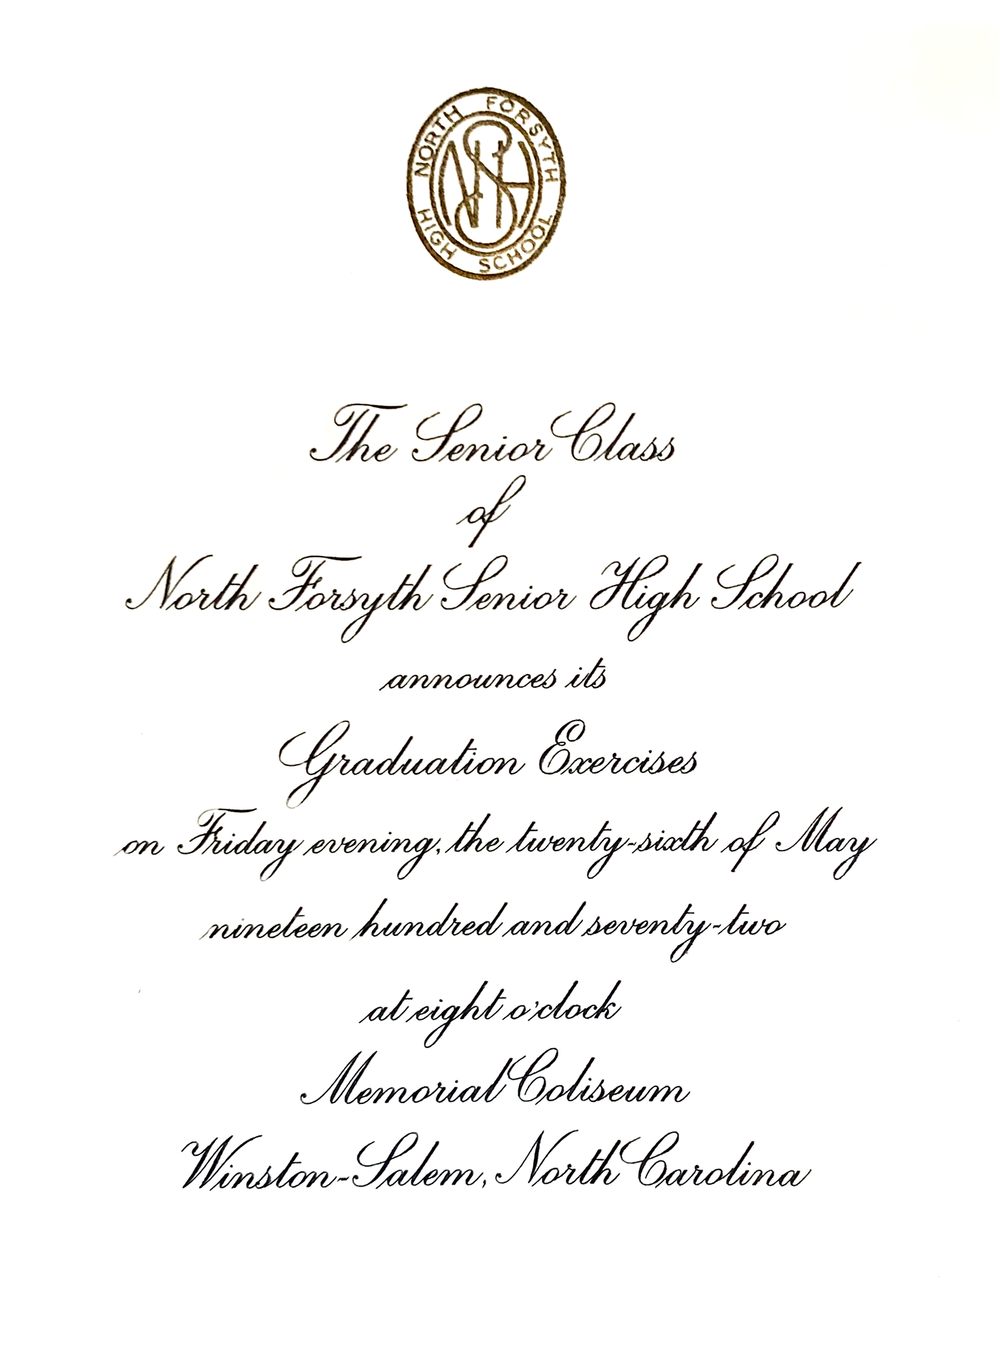 NORTH FORSYTH
HIGH SCHOOL
NFHS
The Senior Class
of
North Forsyth Senior High School
announces its
Graduation Exercises
on Friday evening, the twenty-sixth of May
nineteen hundred and seventy-two
at eight o'clock
Memorial Coliseum
Winston-Salem, North Carolina